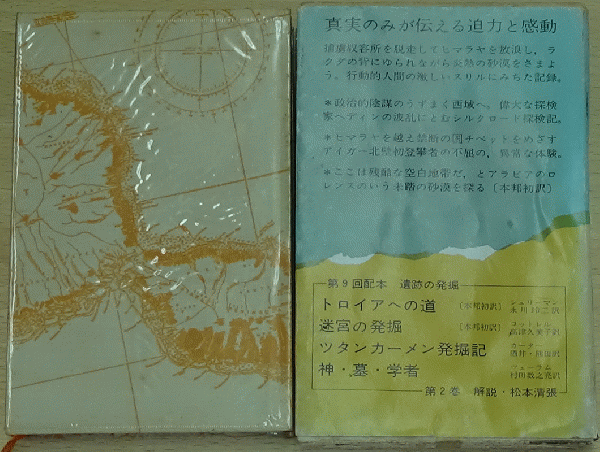 真実のみが伝える迫力と感動
捕虜収容所を脱走してヒマラヤを放浪し，ラ
クダの背にゆられながら炎熱の砂漠をさまよ
う。行動的人間の激しいスリルにみちた記録。
＊政治的陰謀のうずまく西域へ。偉大な探検
家ヘディンの波乱にとむシルクロード探検記。
＊ヒマラヤを越え禁断の国チベットをめざす
アイガー北壁初登攀者の不屈の，異常な体験。
＊ここは残酷な空白地帯だ，とアラビアのロ
レンスのいう未踏の砂漠を探る〔本邦初訳〕
第9回配本 遺跡の発掘
トロイアへの道 〔本邦初訳〕 シュリーマン
迷宮の発掘 〔本邦初訳〕 コットレル
ツタンカーメン発掘記 カーター
神・墓・学者 ツェーラム
村田数之亮訳
第2巻 解説・松本清張